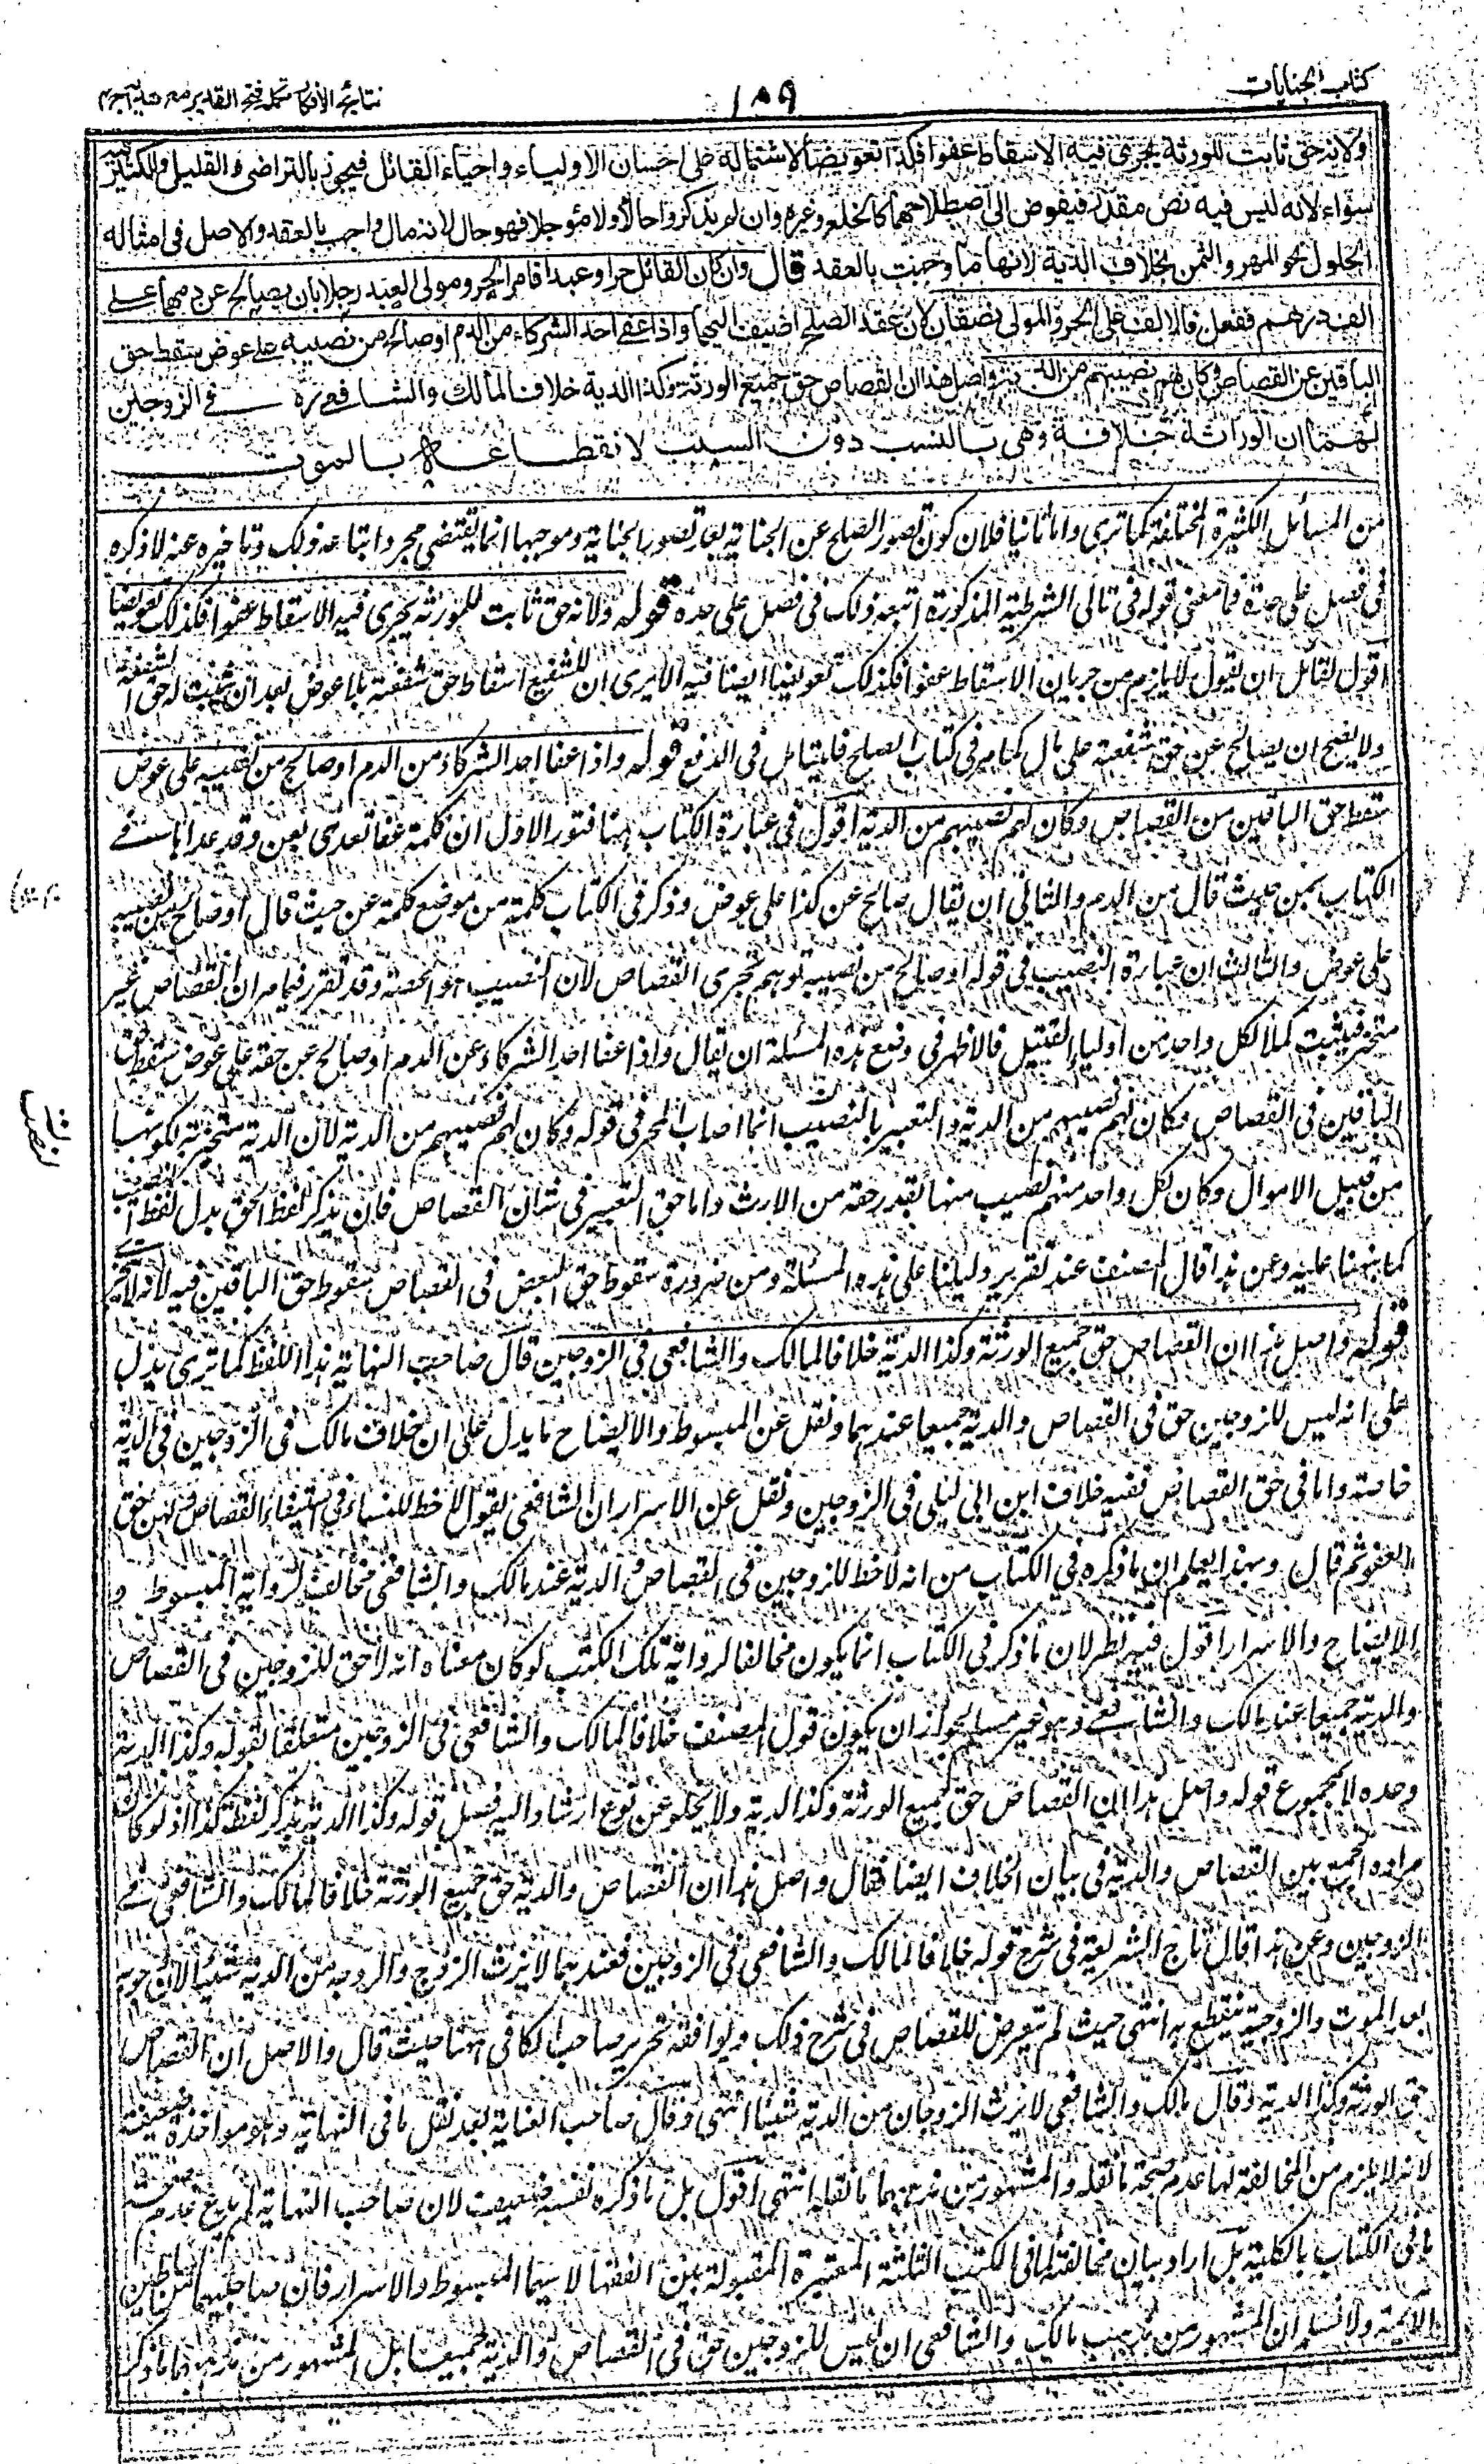 كتاب الجنايات
١٥٩
نتائج الأفكار تكملة فتح القدير مع هدايه ج ٤
ولانه حق ثابت للورثة يجرى فيه الاسقاط عفوا فكذا تعويضا لاشتماله على احسان الاولياء واحياء القاتل فيجوز بالتراضى والقليل والكثير فيه
سواء لانه ليس فيه نص مقدر فيفوض الى اصطلاحهما كالخلع وغيره وان لم يذكروا حالا ولا مؤجلا فهو حال لانه مال واجب بالعقد والاصل فى امثاله
الحلول نحو المهر والثمن بخلاف الدية لانها ما وجبت بالعقد قال وان كان القاتل حرا وعبدا فامر الحر ومولى العبد رجلا بان يصالح عن دمهما على
الف درهم ففعل فالالف على الحر والمولى نصفان لان عقد الصلح اضيف اليهما واذا عفا احد الشركاء من الدم او صالح من نصيبه على عوض سقط حق
الباقين عن القصاص وكان لهم نصيبهم من الدية واصل هذا ان القصاص حق جميع الورثة وكذا الدية خلافا لمالك والشافعى رح فى الزوجين
لهما ان الوراثة خلافة وهى بالنسب دون السبب لانقطاعه بالموت
من المسائل الكثيرة المختلفة كما ترى واما ثانيا فلان كون تصور الصلح عن الجناية بعد تصور الجناية وموجبها انما يقتضى مجرد اتباعه ذلك وتاخيره عنه لا ذكره
فى فصل على حدة فما معنى قوله فى تالى الشرطية المذكورة اتبعه ذلك فى فصل على حدة قوله ولانه حق ثابت للورثة يجرى فيه الاسقاط عفوا فكذلك تعويضا
اقول لقائل ان يقول لا يلزم من جريان الاسقاط عفوا فكذلك تعويضا ايضا فيه الا يرى ان للشفيع اسقاط حق شفعته بلا عوض بعد ان ثبت له حق الشفعة
ولا يصح ان يصالح عن حق شفعته على مال كما مر فى كتاب الصلح فليتامل فى الدفع قوله واذا عفا احد الشركاء من الدم او صالح من نصيبه على عوض
سقط حق الباقين من القصاص وكان لهم نصيبهم من الدية اقول فى عبارة الكتاب ههنا فتور الاول ان كلمة عفا تعدى بعن وقد عداها فى
الكتاب بمن حيث قال من الدم والثانى ان يقال صالح عن كذا على عوض وذكر فى الكتاب كلمة من موضع كلمة عن حيث قال او صالح من نصيبه
على عوض والثالث ان عبارة النصيب فى قوله او صالح من نصيبه توهم تجزى القصاص لان النصيب هو الحصة وقد تقرر فيما مر ان القصاص غير
متجز فيثبت كملا لكل واحد من اولياء القتيل فالاظهر فى وضع هذه المسئلة ان يقال واذا عفا احد الشركاء عن الدم او صالح عن حقه على عوض سقط حق
الباقين فى القصاص وكان لهم نصيبهم من الدية والتعبير بالنصيب انما اصاب المحز فى قوله وكان لهم نصيبهم من الدية لان الدية متجزية لكونها
من قبيل الاموال وكان لكل واحد منهم نصيب منها بقدر حقه من الارث واما حق التعبير فى شان القصاص فان يذكر لفظ الحق بدل لفظ النصيب
كما نبهنا عليه وعن هذا قال المصنف عند تقرير دليلنا على هذه المسئلة ومن ضرورة سقوط حق البعض فى القصاص سقوط حق الباقين فيه لانه لا يتجزى
قوله واصل هذا ان القصاص حق جميع الورثة وكذا الدية خلافا لمالك والشافعى فى الزوجين قال صاحب النهاية هذا اللفظ كما ترى يدل
على انه ليس للزوجين حق فى القصاص والدية جميعا عندهما ونقل عن المبسوط والايضاح ما يدل على ان خلاف مالك فى الزوجين فى الدية
خاصة واما فى حق القصاص ففيه خلاف ابن ابى ليلى فى الزوجين ونقل عن الاسرار ان الشافعى يقول لا حظ للنساء فى استيفاء القصاص ولهن حق
العفو ثم قال وبهذا يعلم ان ما ذكره فى الكتاب من انه لا حظ للزوجين فى القصاص والدية عند مالك والشافعى مخالف لرواية المبسوط و
الايضاح والاسرار اقول فيه نظر لان ما ذكر فى الكتاب انما يكون مخالفا لرواية تلك الكتب لو كان معناه انه لا حق للزوجين فى القصاص
والدية جميعا عند مالك والشافعى وهو غير مسلم لجواز ان يكون قول المصنف خلافا لمالك والشافعى فى الزوجين متعلقا لقوله وكذا الدية
وحده لا لمجموع قوله واصل هذا ان القصاص حق جميع الورثة وكذا الدية ولا يخلو عن نوع ارشاد اليه فصل قوله وكذا الدية بذكر لفظة كذا اذ لو كان
مراده الجمع بين القصاص والدية فى بيان الخلاف ايضا لقال واصل هذا ان القصاص والدية حق جميع الورثة خلافا لمالك والشافعى فى
الزوجين وعن هذا قال تاج الشريعة فى شرح قوله خلافا لمالك والشافعى فى الزوجين فعندهما لا يرث الزوج والزوجة من الدية شيئا لان وجوبه
بعد الموت والزوجية تنقطع به انتهى حيث لم يتعرض للقصاص فى شرح ذلك ويوافقه تحرير صاحب الكافى ههنا حيث قال والاصل ان القصاص
حق الورثة وكذا الدية وقال مالك والشافعى لا يرث الزوجان من الدية شيئا انتهى وقال صاحب العناية بعد نقل ما فى النهاية وهو مواخذة ضعيفة
لانه لا يلزم من المخالفة لها عدم صحة ما نقله والمشهور من مذهبهما ما نقله انتهى اقول بل ما ذكره نفسه ضعيف لان صاحب النهاية لم يدع عدم صحة
ما فى الكتاب بالكلية بل اراد بيان مخالفته لما فى الكتب الثلثة المعتبرة المقبولة بين الفقهاء لا سيما المبسوط والاسرار فان صاحبيهما من اساطين
الائمة ولا نسلم ان المشهور من مذهب مالك والشافعى ان ليس للزوجين حق فى القصاص والدية جميعا بل المشهور من مذهبهما ما ذكر